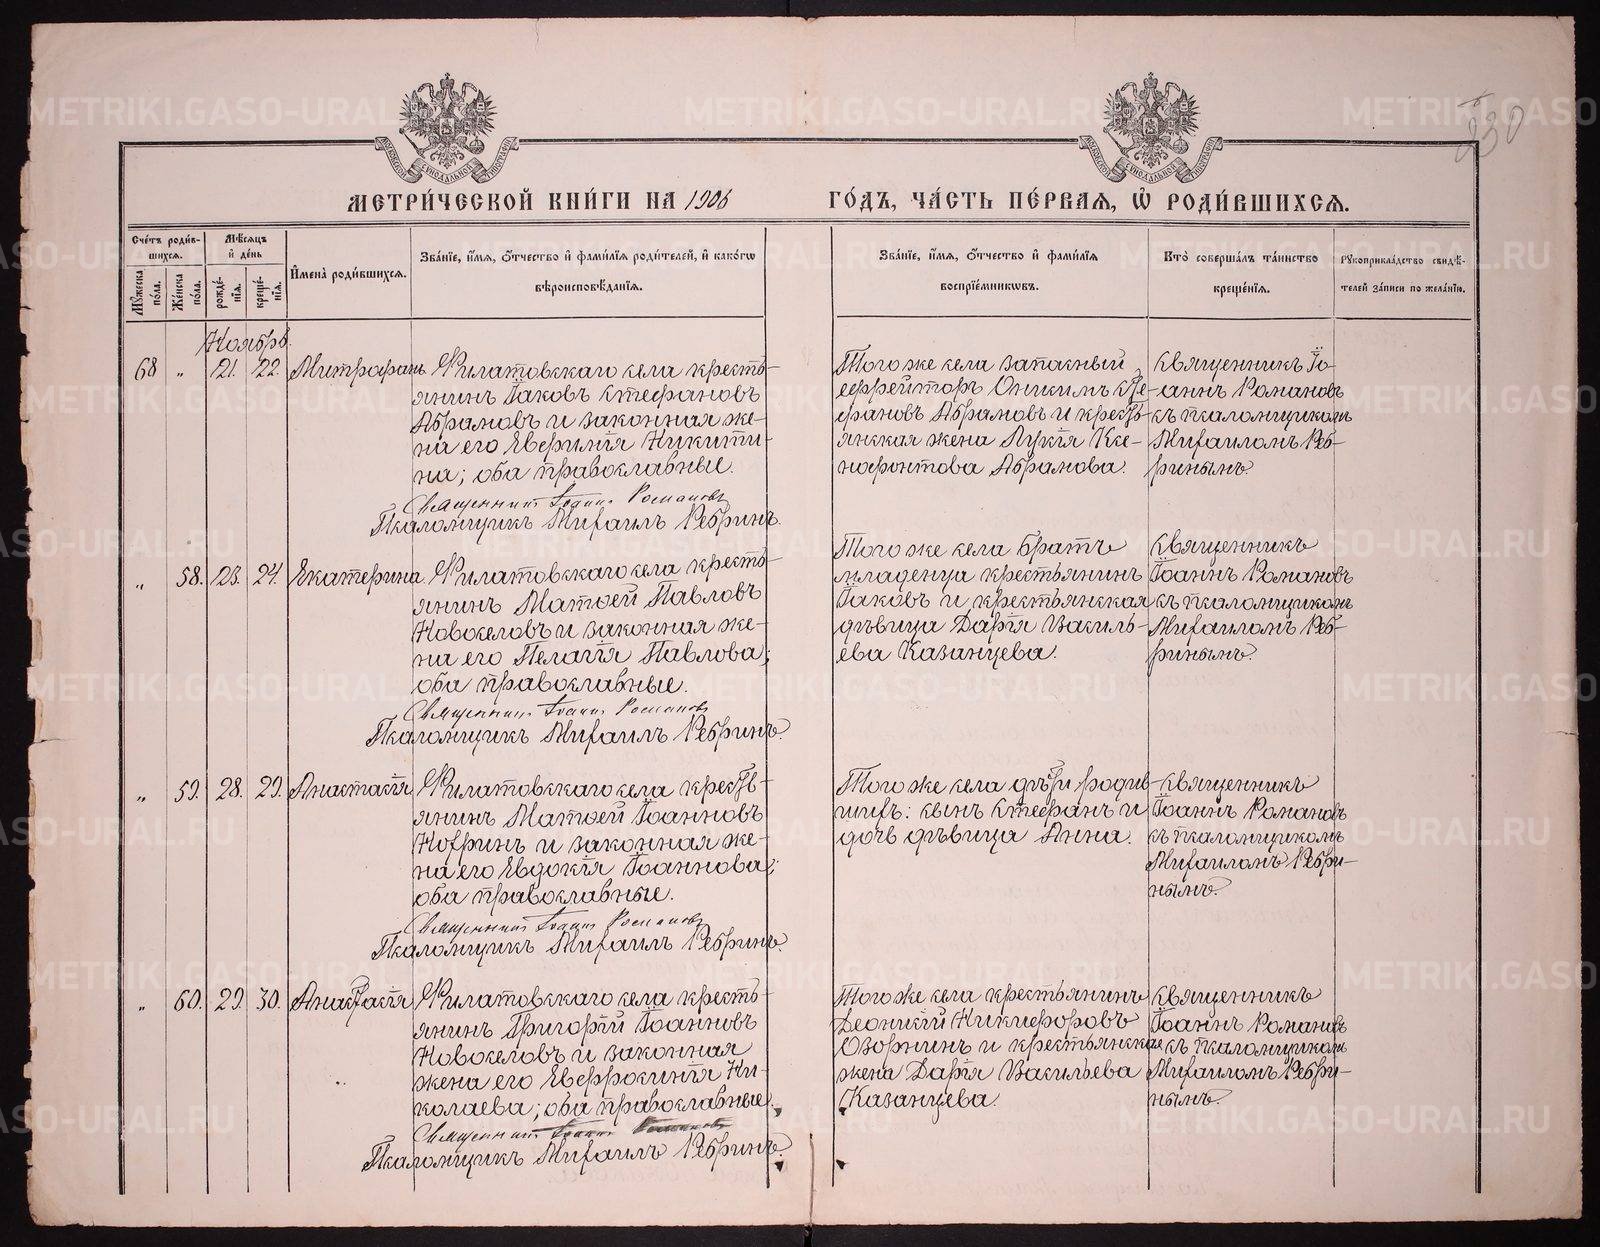 230
МЕТРИ́ЧЕСКОЙ КНИ́ГИ НА 1906 ГО́ДЪ, ЧА́СТЬ ПЕ́РВАЯ, Ѿ РОДИ́ВШИХСЯ.
Сче́тъ роди́в-
шихся.
Мѣ́сяцъ
и де́нь
Мꙋ́жеска по́ла.
Же́нска по́ла.
рожде́-
нїя.
креще́-
нїя.
И҆мена̀ роди́вшихся.
Зва́нїе, и҆́мя, ѻ҆́тчество и҆ фами́лїя роди́телей, и҆ како́гѡ
вѣроисповѣ́данїя.
Зва́нїе, и҆́мя, ѻ҆́тчество и҆ фами́лїя
воспрїе́мникѡвъ.
Кто̀ соверша́лъ та́инство
креще́нїя.
Рꙋкоприкла́дство свидѣ́-
телей за́писи по жела́нїю.
Ноябрь.
68 " 21. 22. Митрофанъ
Филатовскаго села кресть-
янинъ Іаковъ Стефановъ
Абрамовъ и законная же-
на его Еверилія Никити-
на; оба православные.
Священникъ Іоаннъ Романовъ
Псаломщикъ Михаилъ Ребринъ.
Того же села запасный
ефрейторъ Онисимъ Сте-
фановъ Абрамовъ и кресть-
янская жена Лукія Ксе-
нофонтова Абрамова.
Священникъ Іо-
аннъ Романовъ
съ псаломщикомъ
Михаиломъ Реб-
ринымъ.
" 58. 23. 24. Екатерина
Филатовскаго села кресть-
янинъ Матѳей Павловъ
Новоселовъ и законная же-
на его Пелагія Павлова;
оба православные.
Священникъ Іоаннъ Романовъ
Псаломщикъ Михаилъ Ребринъ.
Того же села братъ
младенца крестьянинъ
Іаковъ и крестьянская
дѣвица Дарія Василь-
ева Казанцева.
Священникъ
Іоаннъ Романовъ
съ псаломщикомъ
Михаиломъ Реб-
ринымъ.
" 59. 28. 29. Анастасія
Филатовскаго села кресть-
янинъ Матѳей Іоанновъ
Ко
и законная же-
на его Евдокія Іоаннова;
оба православные.
Священникъ Іоаннъ Романовъ
Псаломщикъ Михаилъ Ребринъ.
Того же села дѣти родив-
шихъ: сынъ Стефанъ и
дочь дѣвица Анна.
Священникъ
Іоаннъ Романовъ
съ псаломщикомъ
Михаиломъ Ребри-
нымъ.
" 60. 29. 30. Анастасія
Филатовскаго села кресть-
янинъ Григорій Іоанновъ
Новоселовъ и законная
жена его Евфросинія Ни-
колаева; оба православные.
Священникъ Іоаннъ Романовъ
Псаломщикъ Михаилъ Ребринъ.
Того же села крестьянинъ
Леонидъ Никифоровъ
Озорнинъ и крестьянская
жена Дарія Васильева
Казанцева.
Священникъ
Іоаннъ Романовъ
съ псаломщикомъ
Михаиломъ Ребри-
нымъ.
METRIKI.GASO-URAL.RU